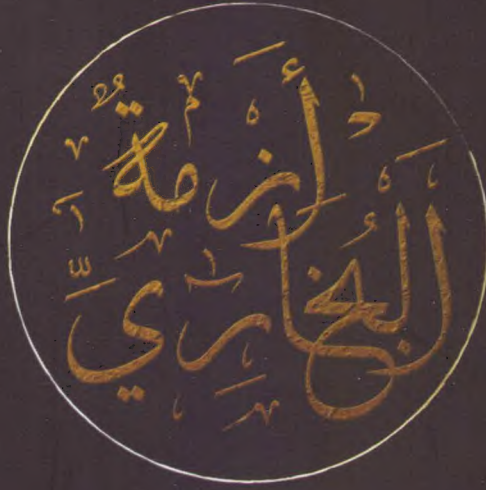 أَزْمَةُ
البُخَارِيِّ